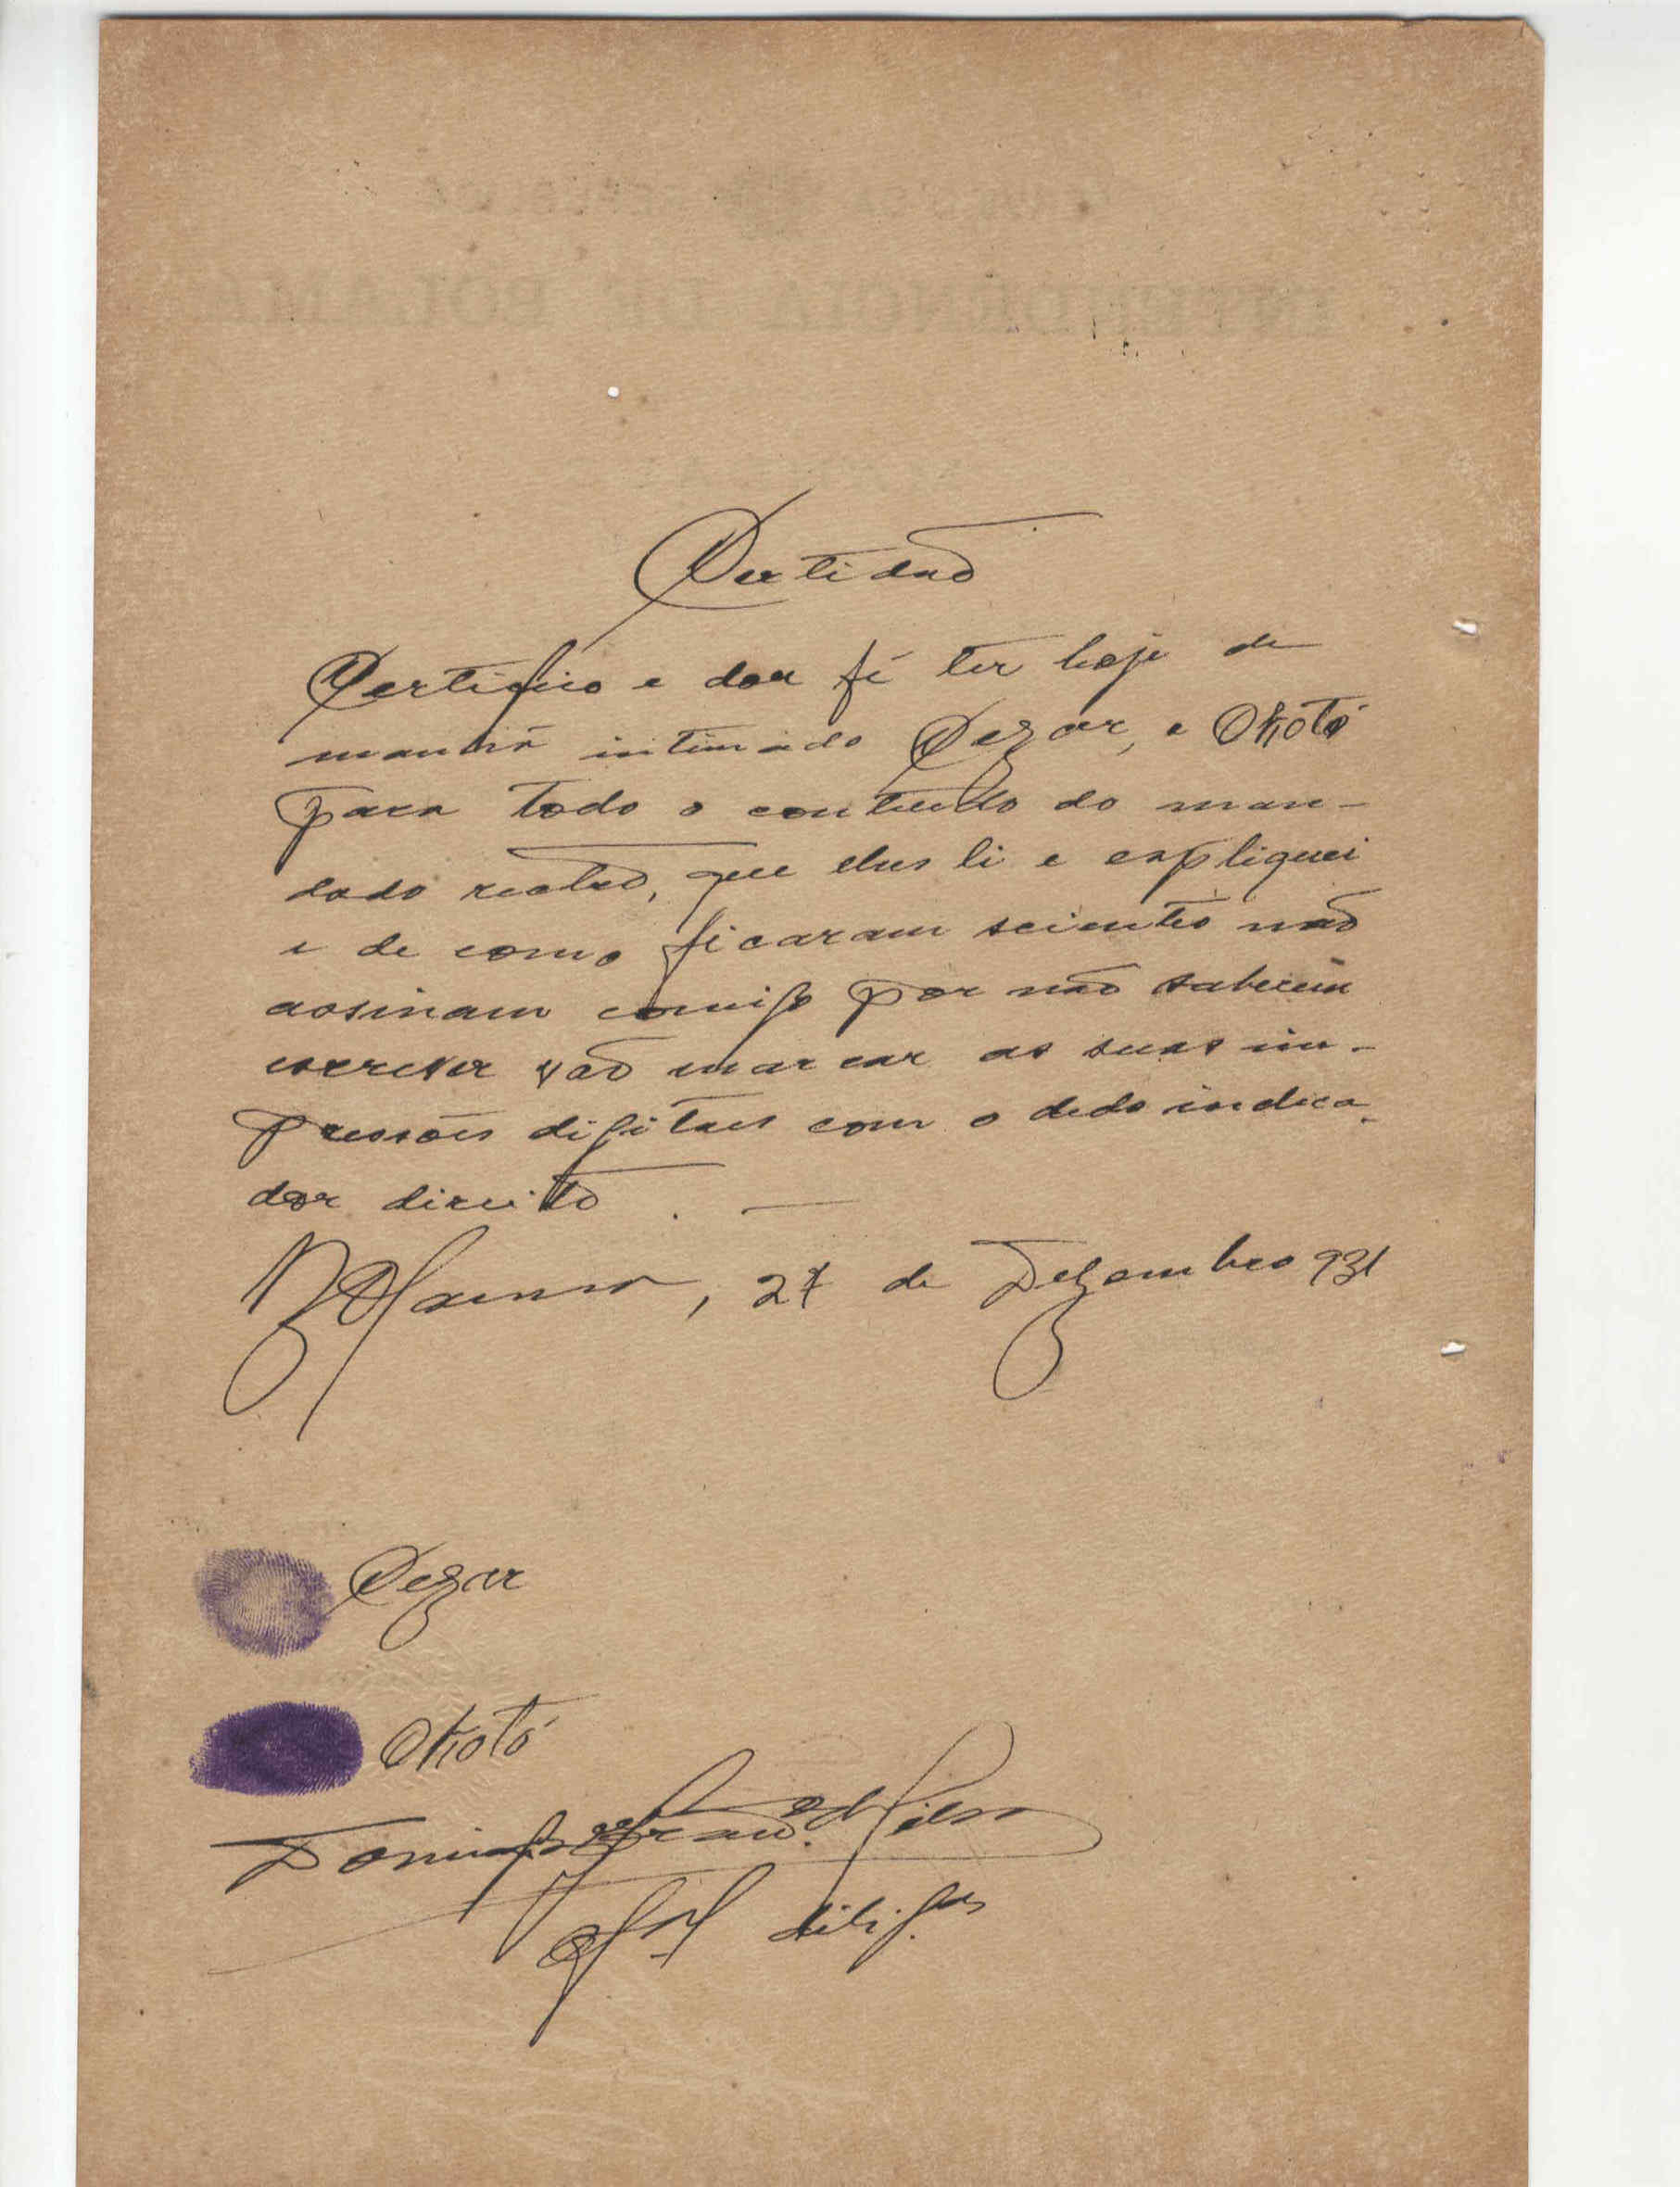 Certidão
Certifico e dou fé ter hoje de
manhã intimado Cezar, e Okotó
para todo o contendo do man-
dado retro, que elhes li e expliquei
e de como ficaram scientes não
assinam comigo por não saberem
escrever vão marcar as suas im-
pressões digitaes com o dedo indica-
dor direito. —
Bolama, 27 de Dezembro 931
Cezar
Okotó
Domingos da Silva
diligas
INTENDENCIA DE BOLAMA